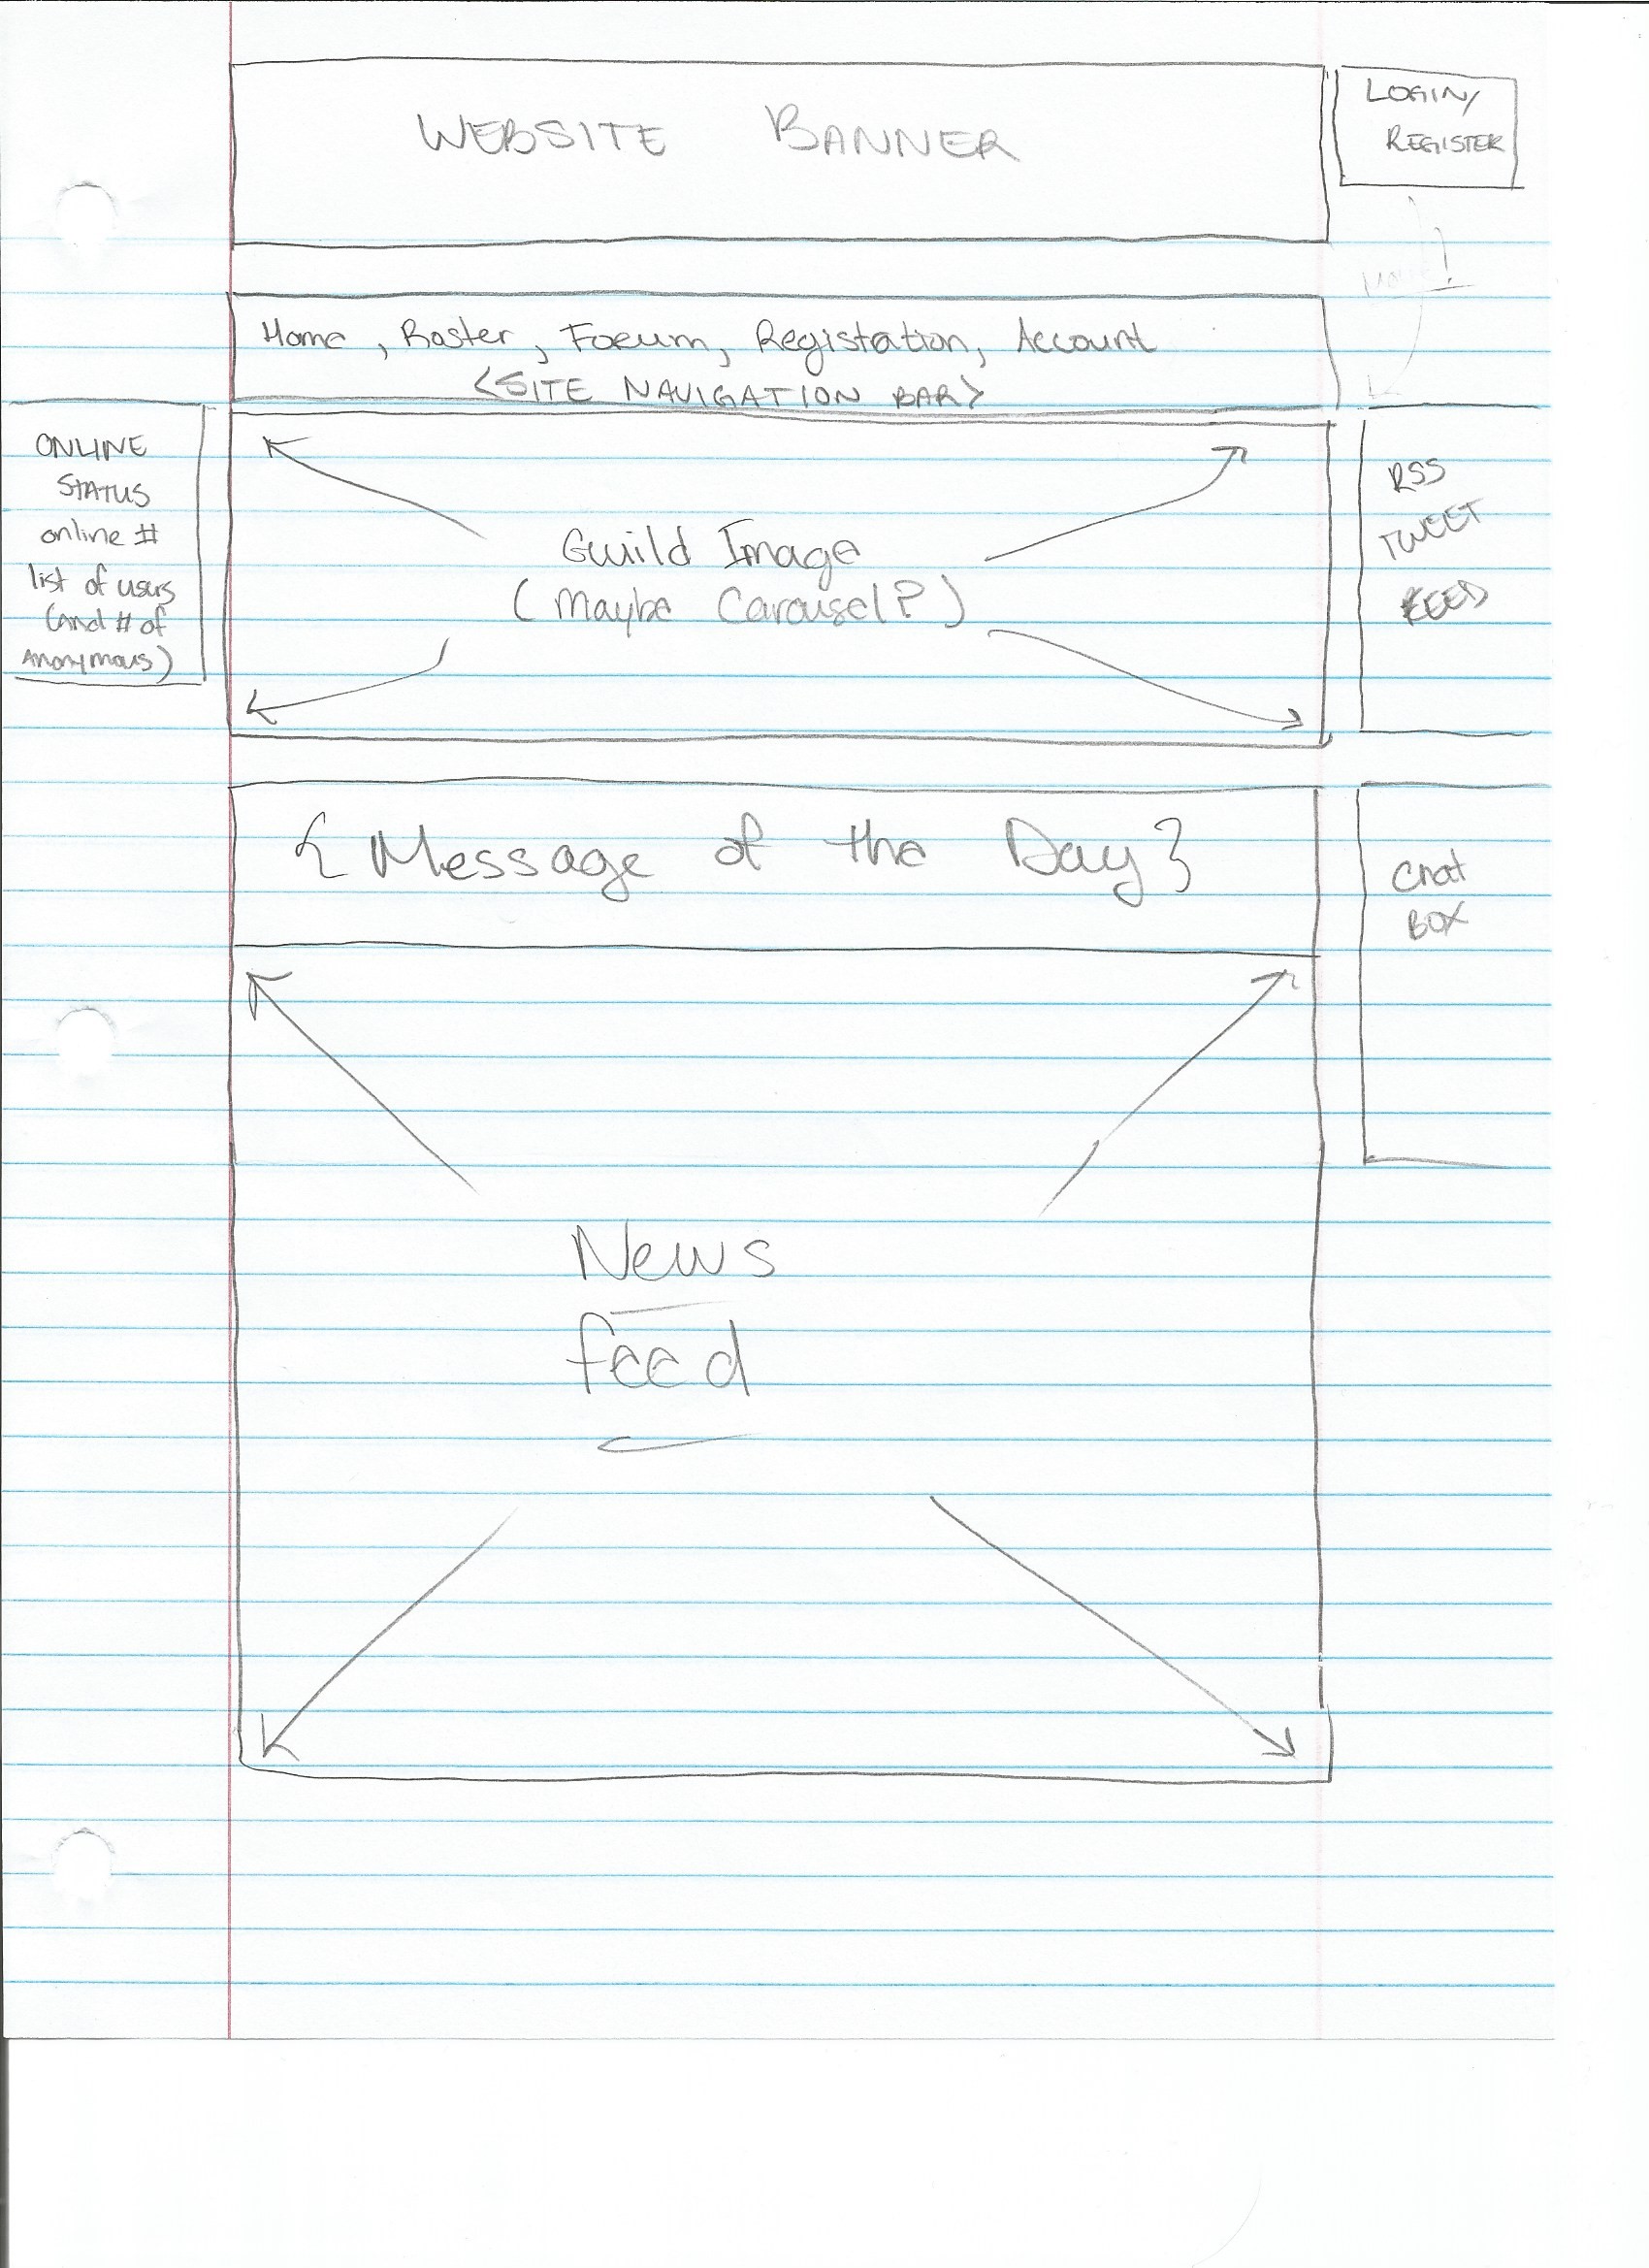 WEBSITE BANNER
LOGIN/
REGISTER
Home, Roster, Forum, Registation, Account
<SITE NAVIGATION BAR>
ONLINE
STATUS
online #
list of users
(and # of
Anonymous)
Guild Image
(Maybe Carousel?)
RSS
TWEET
FEED
{Message of the Day}
Chat
BOX
News
feed